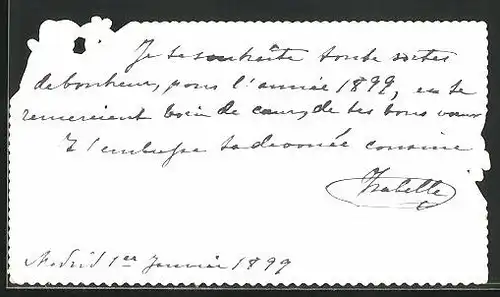 Je te souhaite toute sortes
de bonheur, pour l'année 1899, en te
remerciant bien de cœur, de tes bons vœux
Et t'embrasse ta dévouée cousine
Isabelle
Madrid 1er Janvier 1899